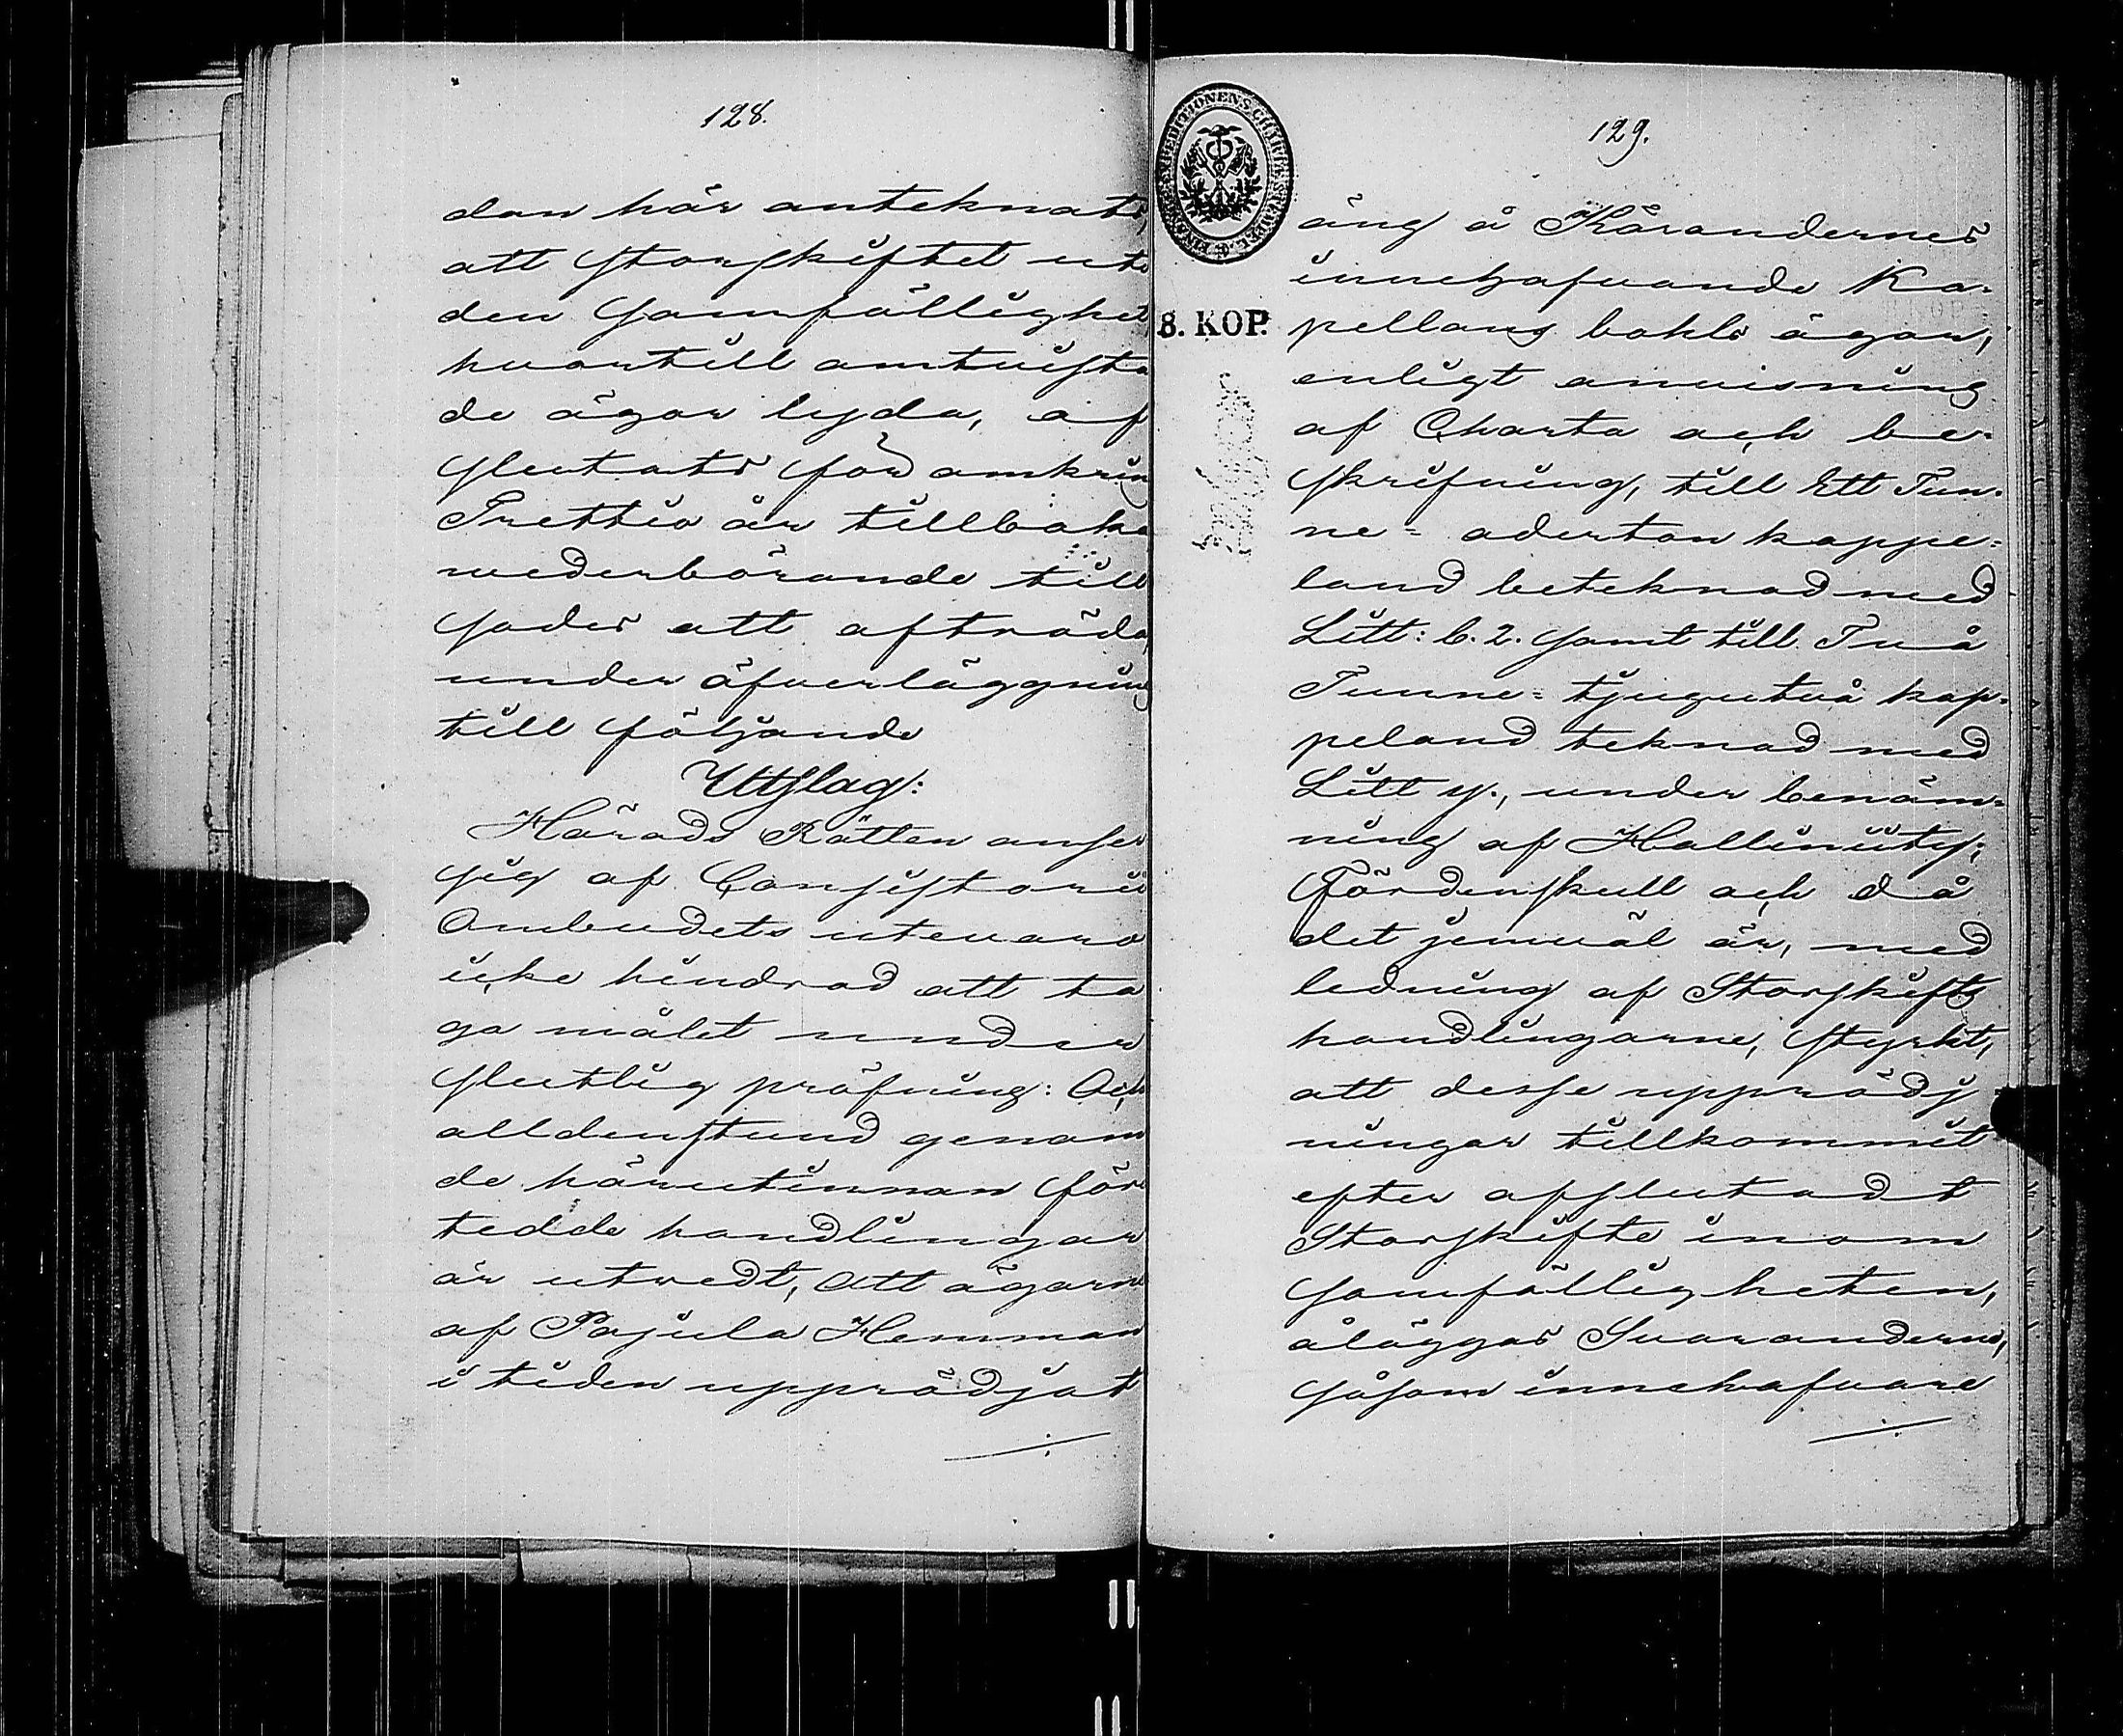 128.
dan här anteknats,
att Storskiftet uti
den Samfällighet
hvartill omtvista
de ägor lyda, af
slutats för omkring
Trettio år tillbaka
wederbörande till
sades att afträda,
under öfverläggning
till följande
Uttslag:
Härads Rätten anser
sig af Consistorii
Ombudets utevaro
icke hindrad att ta
ga målet under
slutlig pröfning: Och
alldenstund genom
de härutinnan för
tedde handlingar
är utredt, att ägarne
af Pajula Hemman
i tiden upprödjat
./.
129.
FINANCE-EXPEDITIONENS CHARTÆ SIGILLATÆ
8. KOP.
äng å Kärandernes
innehafvande Ka-
pellans bohls ägor,
enligt anvisning
af Charta och be-
skrifning, till Ett Tun-
ne- aderton kappe-
land beteknad med
Litt: b. 2. samt till Två
Tunne- tjugutvå kap-
peland teknad med
Litt y., under benäm-
ning af Hallinüty;
Fördenskull och då
det jemväl är, med
ledning af Storskifts
handlingarne, styrkt,
att desse upprödj
ningar tillkommit
efter afslutadt
Storskifte inom
Samfälligheten,
åläggas Svaranderne,
såsom innehafvare
./.